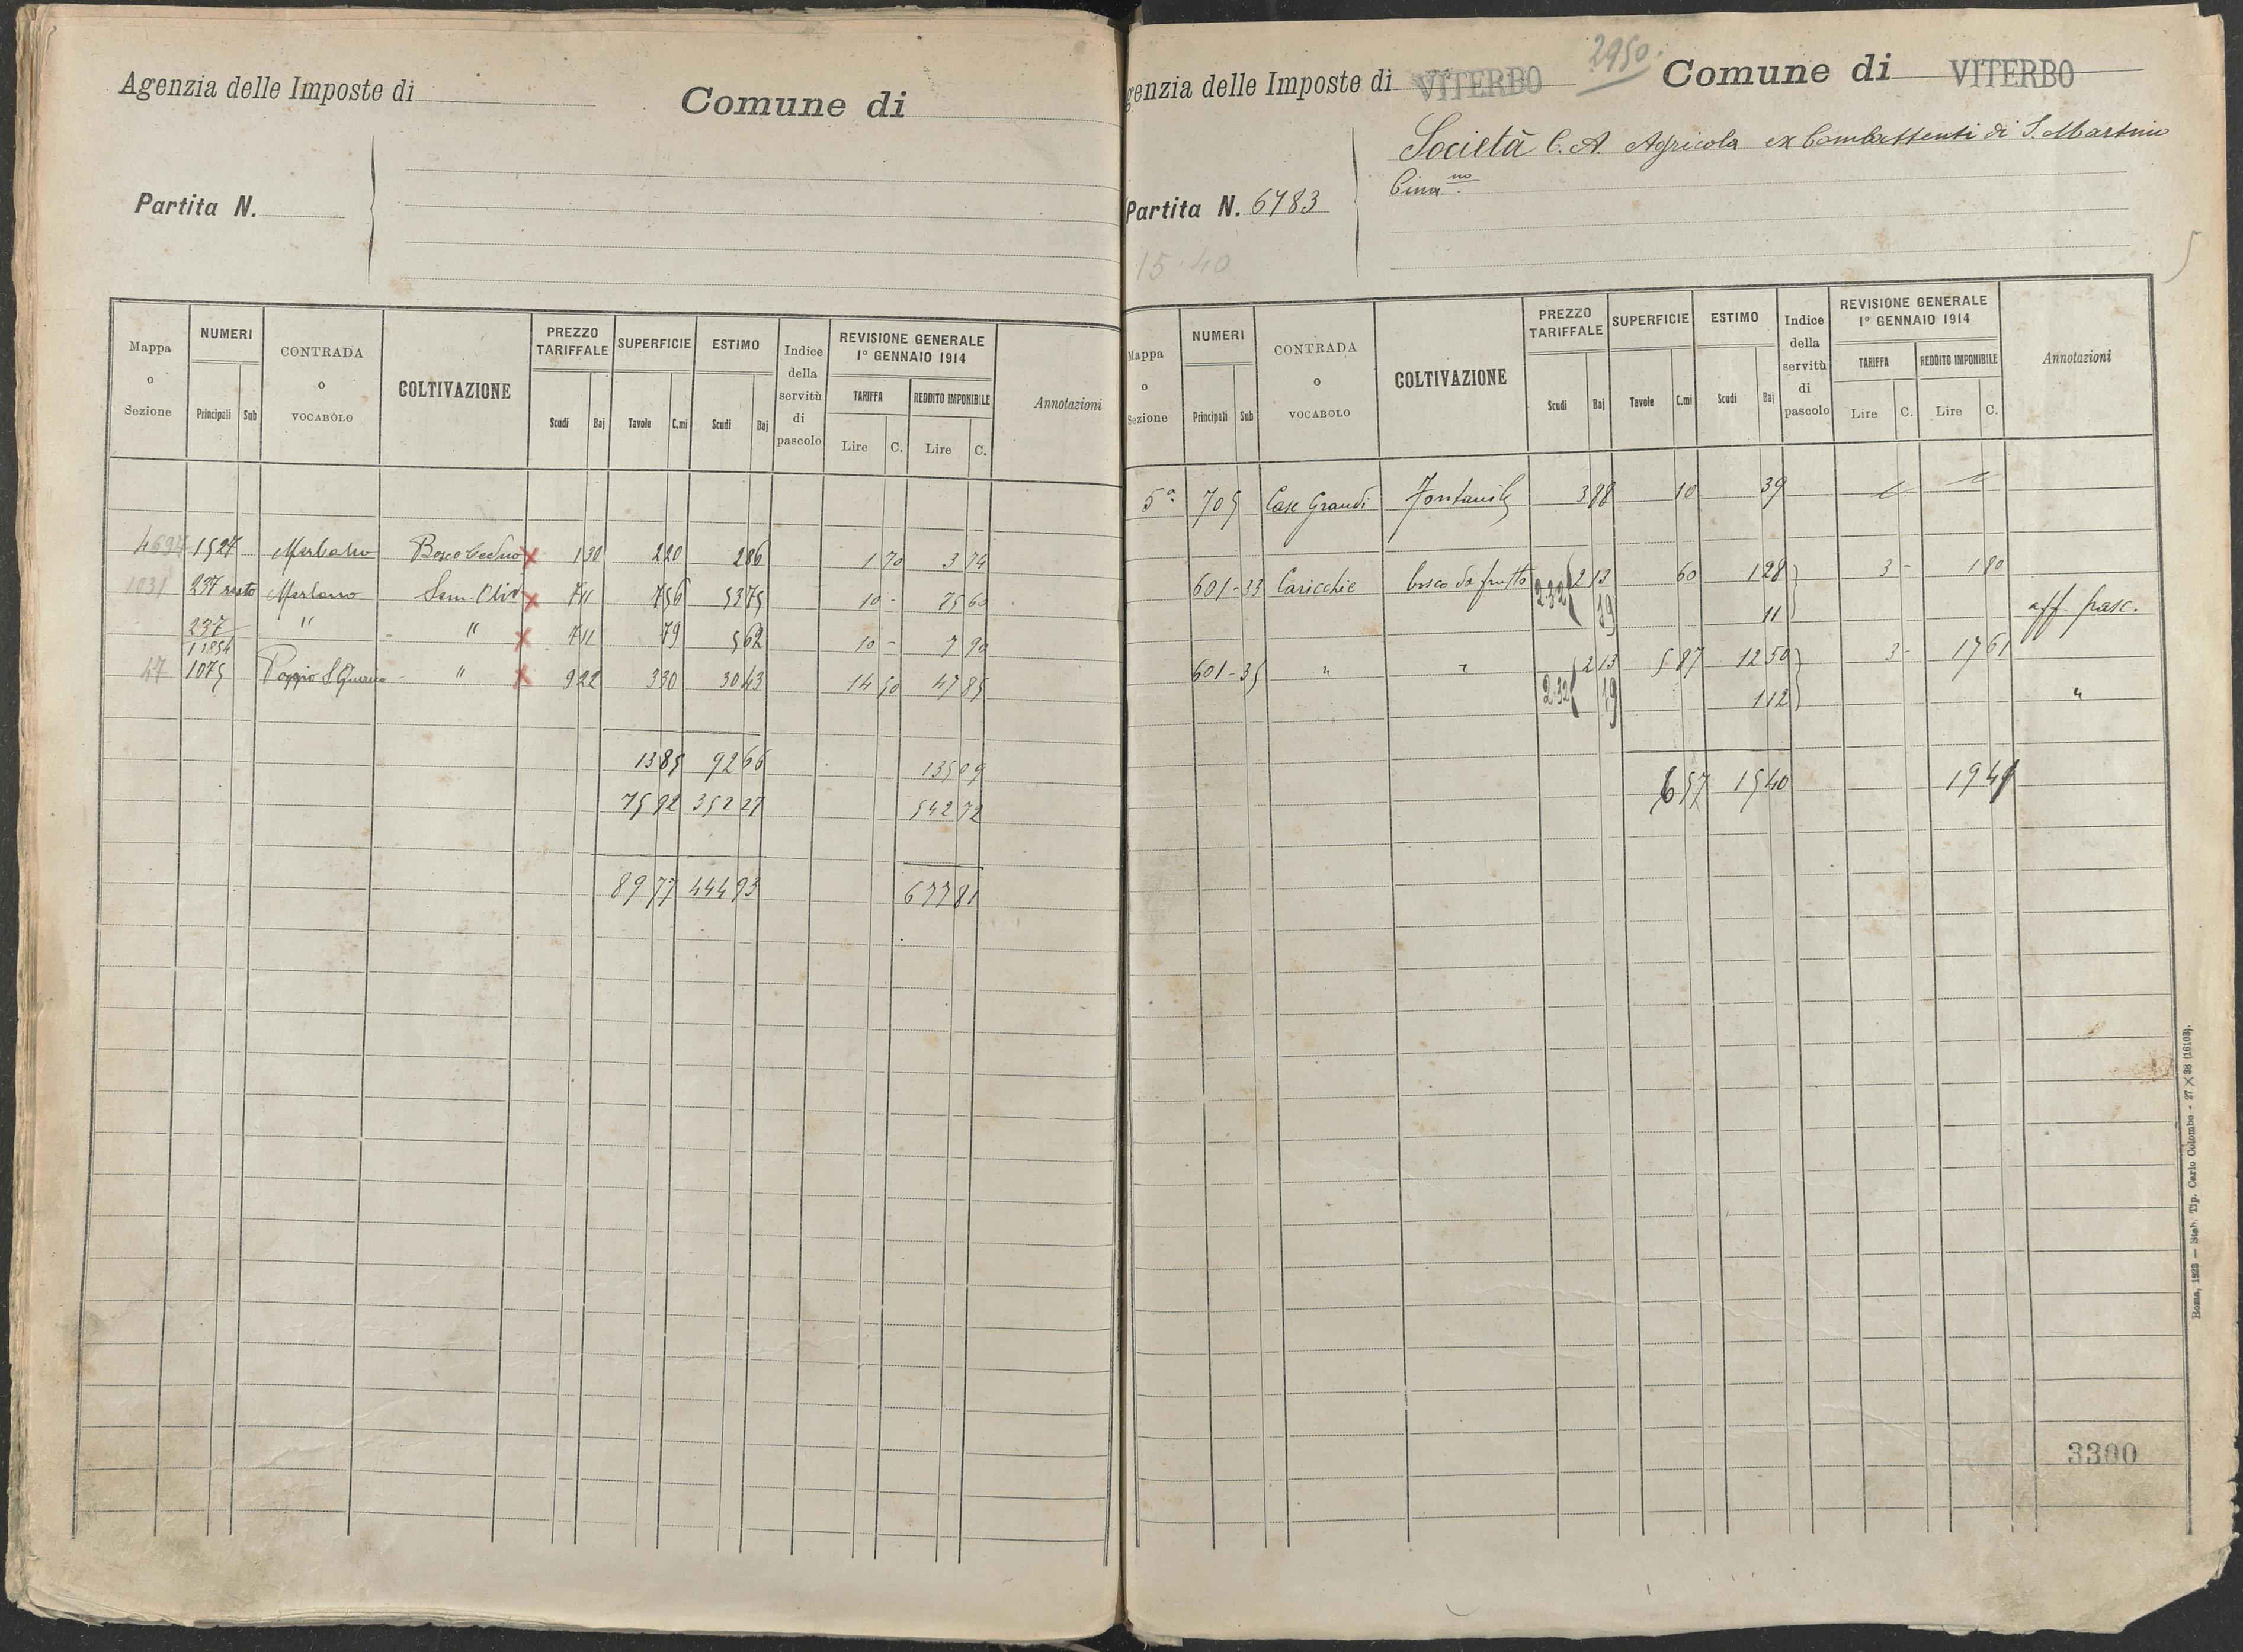 Agenzia delle Imposte di
Comune di
Partita N.
Mappa o Sezione
NUMERI
Principali Sub
CONTRADA o VOCABOLO
COLTIVAZIONE
PREZZO TARIFFALE
Scudi Baj
SUPERFICIE
Tavole C.mi
ESTIMO
Scudi Baj
Indice della servitù di pascolo
REVISIONE GENERALE
1° GENNAIO 1914
TARIFFA
Lire C.
REDDITO IMPONIBILE
Lire C.
Annotazioni
1527 Bosco Ceduo x 1 30 2 20 2 86 1 70 3 74
1031 237 resto Sem. Oliv x 7 11 7 56 53 75 10 - 75 60
237 " " x 7 11 79 5 62 10 - 7 90
47 1075 Poggio " x 9 22 3 30 30 43 14 50 47 85
13 85 92 66 135 09
75 92 352 27 542 72
89 77 444 93 677 81
genzia delle Imposte di VITERBO
2950
Comune di VITERBO
Società C. A. Agricola ex Combattenti di S. Martino
Cim no
Partita N. 6783
15.40
Mappa o Sezione
NUMERI
Principali Sub
CONTRADA o VOCABOLO
COLTIVAZIONE
PREZZO TARIFFALE
Scudi Baj
SUPERFICIE
Tavole C.mi
ESTIMO
Scudi Baj
Indice della servitù di pascolo
REVISIONE GENERALE
1° GENNAIO 1914
TARIFFA
Lire C.
REDDITO IMPONIBILE
Lire C.
Annotazioni
5a 705 Case Grandi Fontanile 3 88 10 39
601-33 Caricchie bosco da frutto 2 13 60 1 28 3 - 1 80
2.32 19 11 aff. pasc.
601-35 " " 2 13 5 87 12 50 3 - 17 61
2.32 19 1 12 "
6 57 15 40 19 41
3300
Roma, 1923 — Stab. Tip. Carlo Colombo - 27 X 38 (16103).